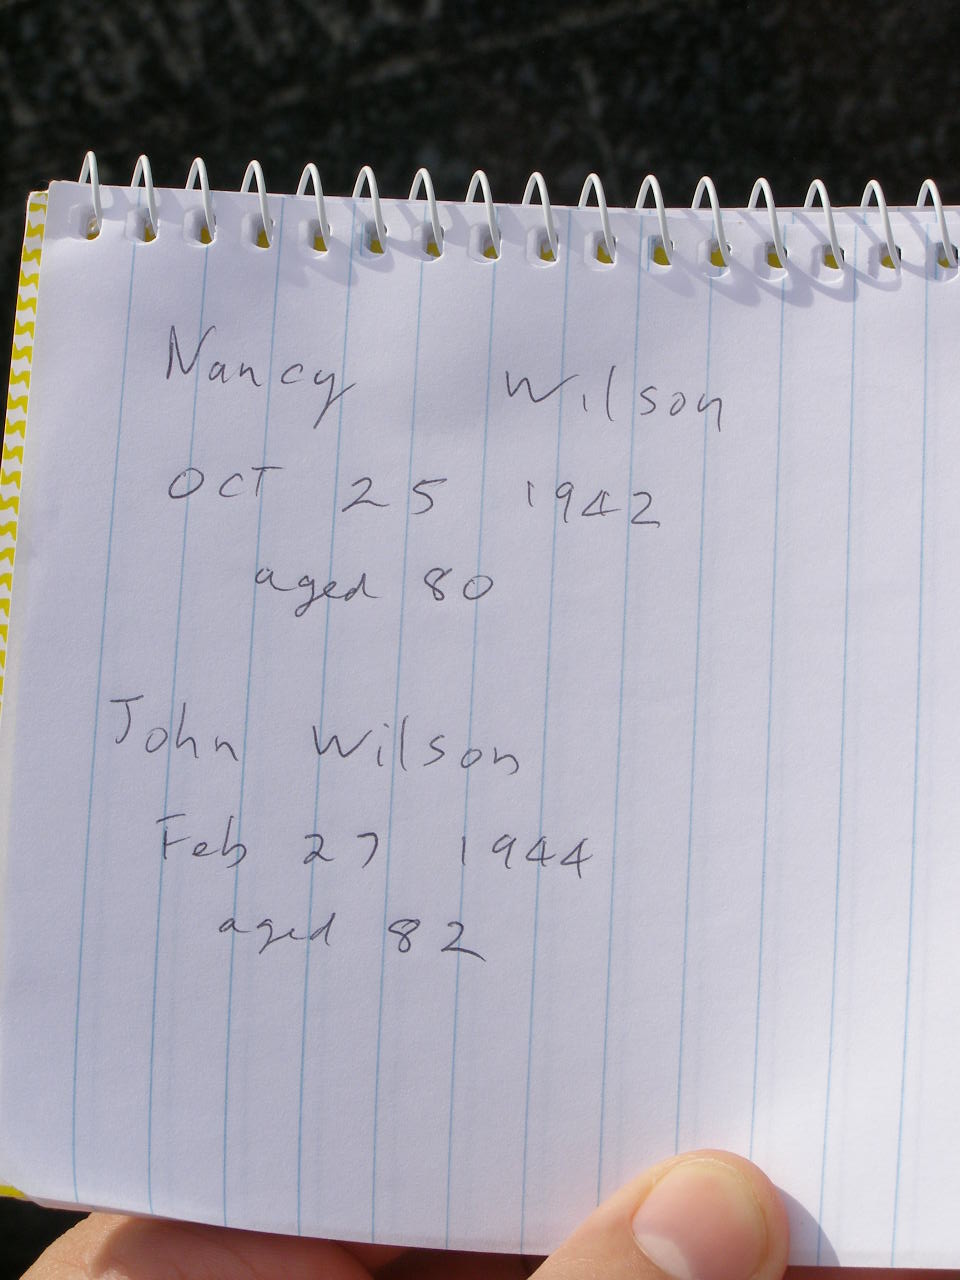 Nancy Wilson
OCT 25 1942
aged 80
John Wilson
Feb 27 1944
aged 82